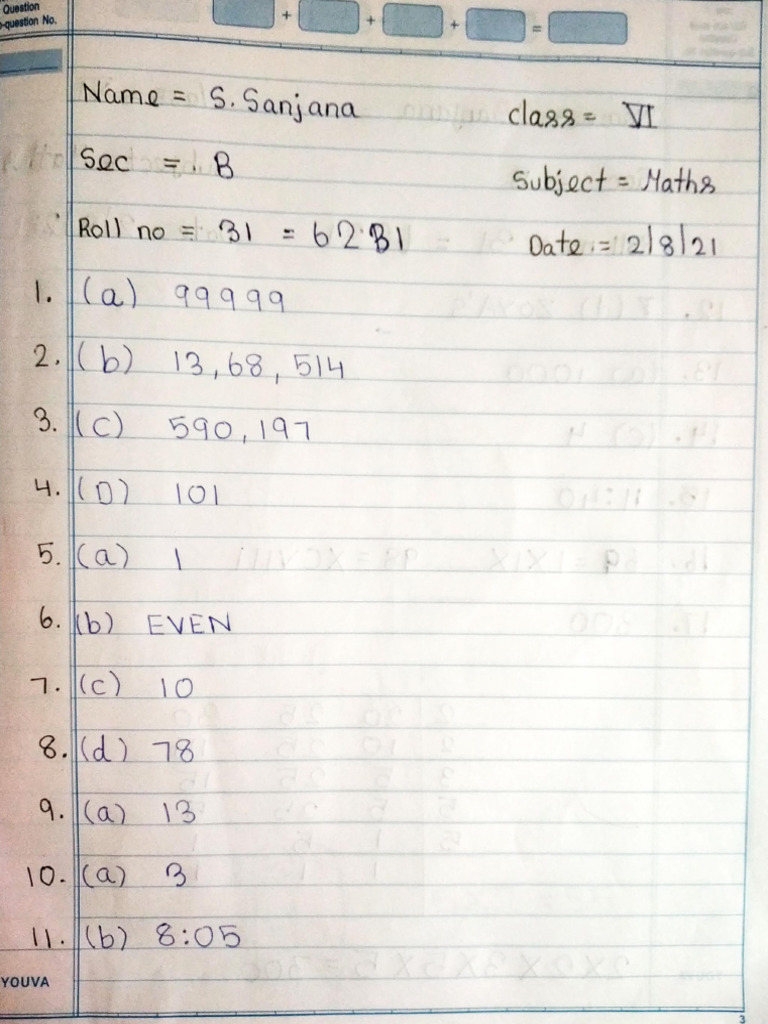 Question
-question No.
+ + + =
Name = S. Sanjana
class = VI
Sec = B
Subject = Maths
Roll no = 31 = 6231
Date = 2/8/21
1. (a) 99999
2. (b) 13,68,514
3. (c) 590,197
4. (D) 101
5. (a) 1
6. (b) EVEN
7. (c) 10
8. (d) 78
9. (a) 13
10. (a) 3
11. (b) 8:05
YOUVA
3